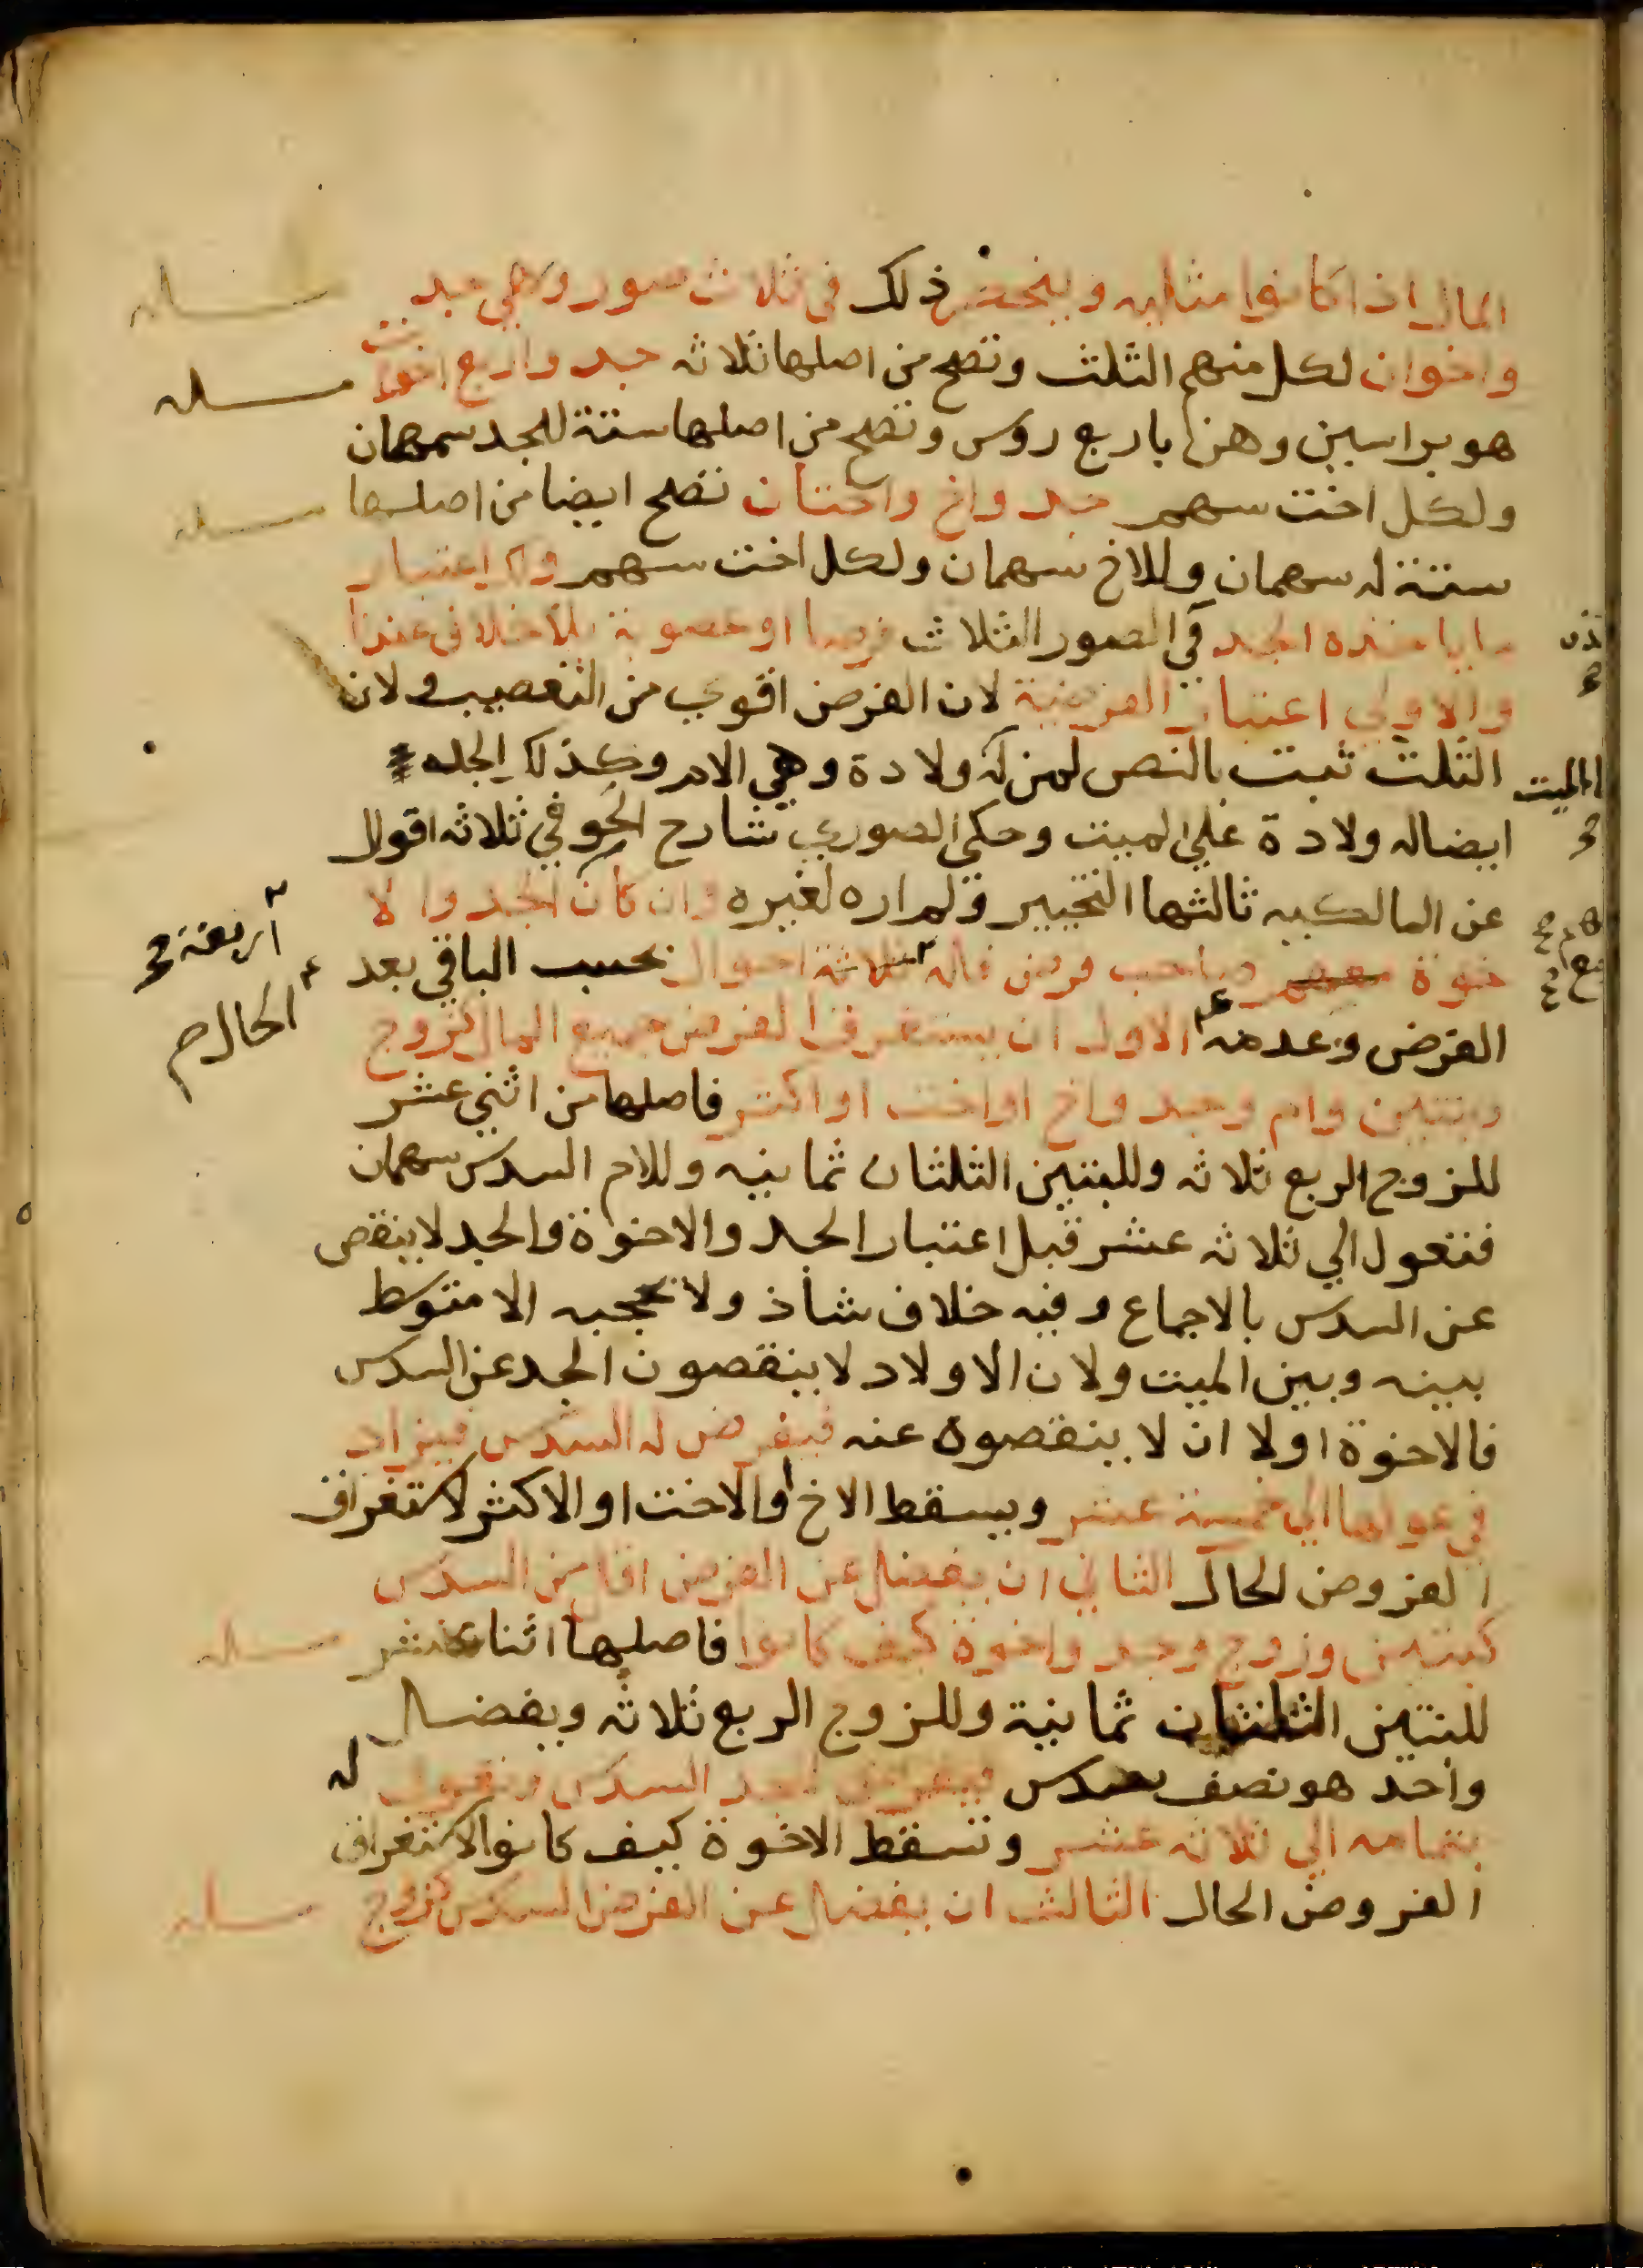 المال اذا كانوا مثليه وينحصر ذلك في ثلاث صور وهي جد
واخوان لكل منهم الثلث وتصح من اصلها ثلاثه جد واربع اخوات
هو براسين وهن باربع روس وتصح من اصلها ستة للجد سهمان
ولكل اخت سهم جد واخ واختان تصح ايضا من اصلها
ستة له سهمان وللاخ سهمان ولكل اخت سهم واعتبار
ما ياخذه الجد في الصور الثلاث فرضا او عصوبة بلا خلاف عندنا
والاولي اعتبار الفرضية لان الفرض اقوي من التعصيب ولان
الثلث ثبت بالنص لمن له ولادة وهي الام وكذلك الجد
ايضا له ولادة علي الميت وحكي الصوري شارح الحوفي ثلاثه اقوال
عن المالكيه ثالثها التخيير ولم اره لغيره وان كان الجد والا
خوة معهم صاحب فرض فله ثلاثة احوال بحسب الباقي بعد
الفرض وعدمه الاول ان يستغرق الفرض جميع المال كزوج
وبنتين وام وجد واخ او اخت او اكثر فاصلها من اثني عشر
للزوج الربع ثلاثه وللبنتين الثلثان ثمانيه وللام السدس سهمان
فتعول الي ثلاثه عشر قبل اعتبار الجد والاخوة والجد لا ينقص
عن السدس بالاجماع وفيه خلاف شاذ ولا يحجبه الا متوسط
بينه وبين الميت ولان الاولاد لا ينقصون الجد عن السدس
فالاخوة اولا ان لا ينقصوه عنه فيفرض له السدس فيزاد
في عولها الي خمسة عشر ويسقط الاخ او الاخت او الاكثر لاستغراق
الفروض الحال الثاني ان يفضل عن الفرض اقل من السدس
كبنتين وزوج وجد واخوة كيف كانوا فاصلها اثنا عشر
للبنتين الثلثان ثمانية وللزوج الربع ثلاثه ويفضل
واحد هو نصف سدس فيفرض للجد السدس وتعول له
بتمامه الي ثلاثه عشر وتسقط الاخوة كيف كانوا لاستغراق
الفروض الحال الثالث ان يفضل عن الفرض السدس كزوج
مسله
مسله
مسله
الميت
اربعة
الحال
مسله
مسله